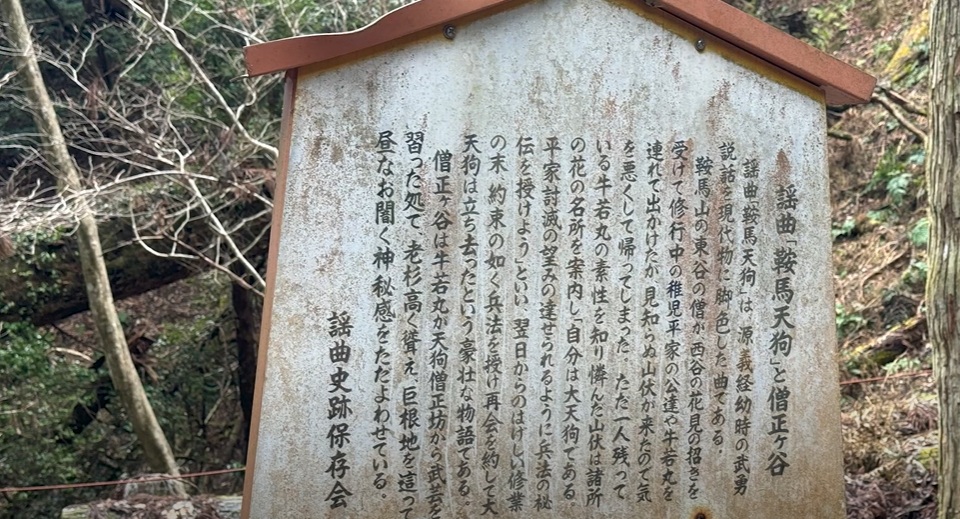 謡曲「鞍馬天狗」と僧正ヶ谷
謡曲「鞍馬天狗」は、源義経幼時の武勇
説話を現代物に脚色した曲である。
鞍馬山の東谷の僧が西谷の花見の招きを
受けて修行中の稚児平家の公達や牛若丸を
連れて出かけたが見知らぬ山伏が来たので気
を悪くして帰ってしまった。ただ一人残って
いる牛若丸の素性を知り憐んだ山伏は諸所
の花の名所を案内し「自分は大天狗である。
平家討滅の望みの達せられるように兵法の秘
伝を授けよう」といい、翌日からのはげしい修業
の末、約束の如く兵法を授け再会を約して大
天狗は立ち去ったという豪壮な物語である。
僧正ヶ谷は牛若丸が天狗僧正坊から武芸を
習った処で、老杉高く聳え、巨根地を這って
昼なお闇く神秘感をただよわせている。
謡曲史跡保存会